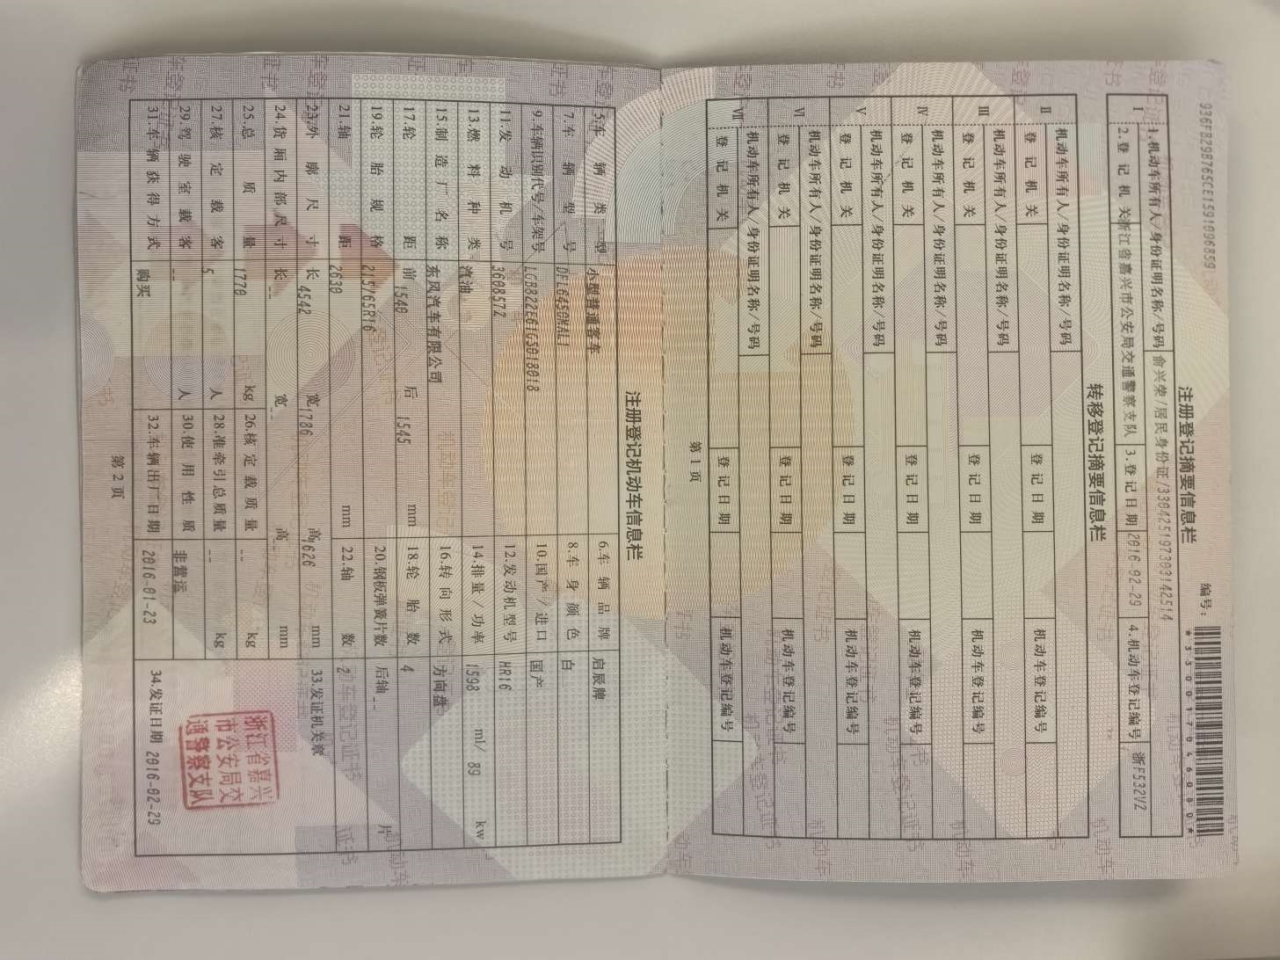 936FB298765CE1591096859
编号：
*350017046000*
注册登记摘要信息栏
I 1.机动车所有人/身份证明名称/号码 俞兴荣/居民身份证/330425197303142514
2.登记机关 浙江省嘉兴市公安局交通警察支队 3.登记日期 2016-02-29 4.机动车登记编号 浙F532V2
转移登记摘要信息栏
II 机动车所有人/身份证明名称/号码
登记机关 登记日期 机动车登记编号
III 机动车所有人/身份证明名称/号码
登记机关 登记日期 机动车登记编号
IV 机动车所有人/身份证明名称/号码
登记机关 登记日期 机动车登记编号
V 机动车所有人/身份证明名称/号码
登记机关 登记日期 机动车登记编号
VI 机动车所有人/身份证明名称/号码
登记机关 登记日期 机动车登记编号
VII 机动车所有人/身份证明名称/号码
登记机关 登记日期 机动车登记编号
第1页
注册登记机动车信息栏
5.车辆类型 小型普通客车 6.车辆品牌 启辰牌
7.车辆型号 DFL6450MAL1 8.车身颜色 白
9.车辆识别代号/车架号 LGB822E61GS018018 10.国产/进口 国产
11.发动机号 360857Z 12.发动机型号 HR16
13.燃料种类 汽油 14.排量/功率 1598 ml/ 89 kw
15.制造厂名称 东风汽车有限公司 16.转向形式 方向盘
17.轮距 前 1540 后 1545 mm 18.轮胎数 4
19.轮胎规格 215/65R16 20.钢板弹簧片数 后轴 -- 片
21.轴距 2630 mm 22.轴数 2
23.外廓尺寸 长 4542 宽 1786 高 1626 mm 33.发证机关章
24.货厢内部尺寸 长 -- 宽 -- 高 -- mm
25.总质量 1770 kg 26.核定载质量 -- kg
27.核定载客 5 人 28.准牵引总质量 -- kg
29.驾驶室载客 -- 人 30.使用性质 非营运
浙江省嘉兴
市公安局交
通警察支队
31.车辆获得方式 购买 32.车辆出厂日期 2016-01-23 34.发证日期 2016-02-29
第2页